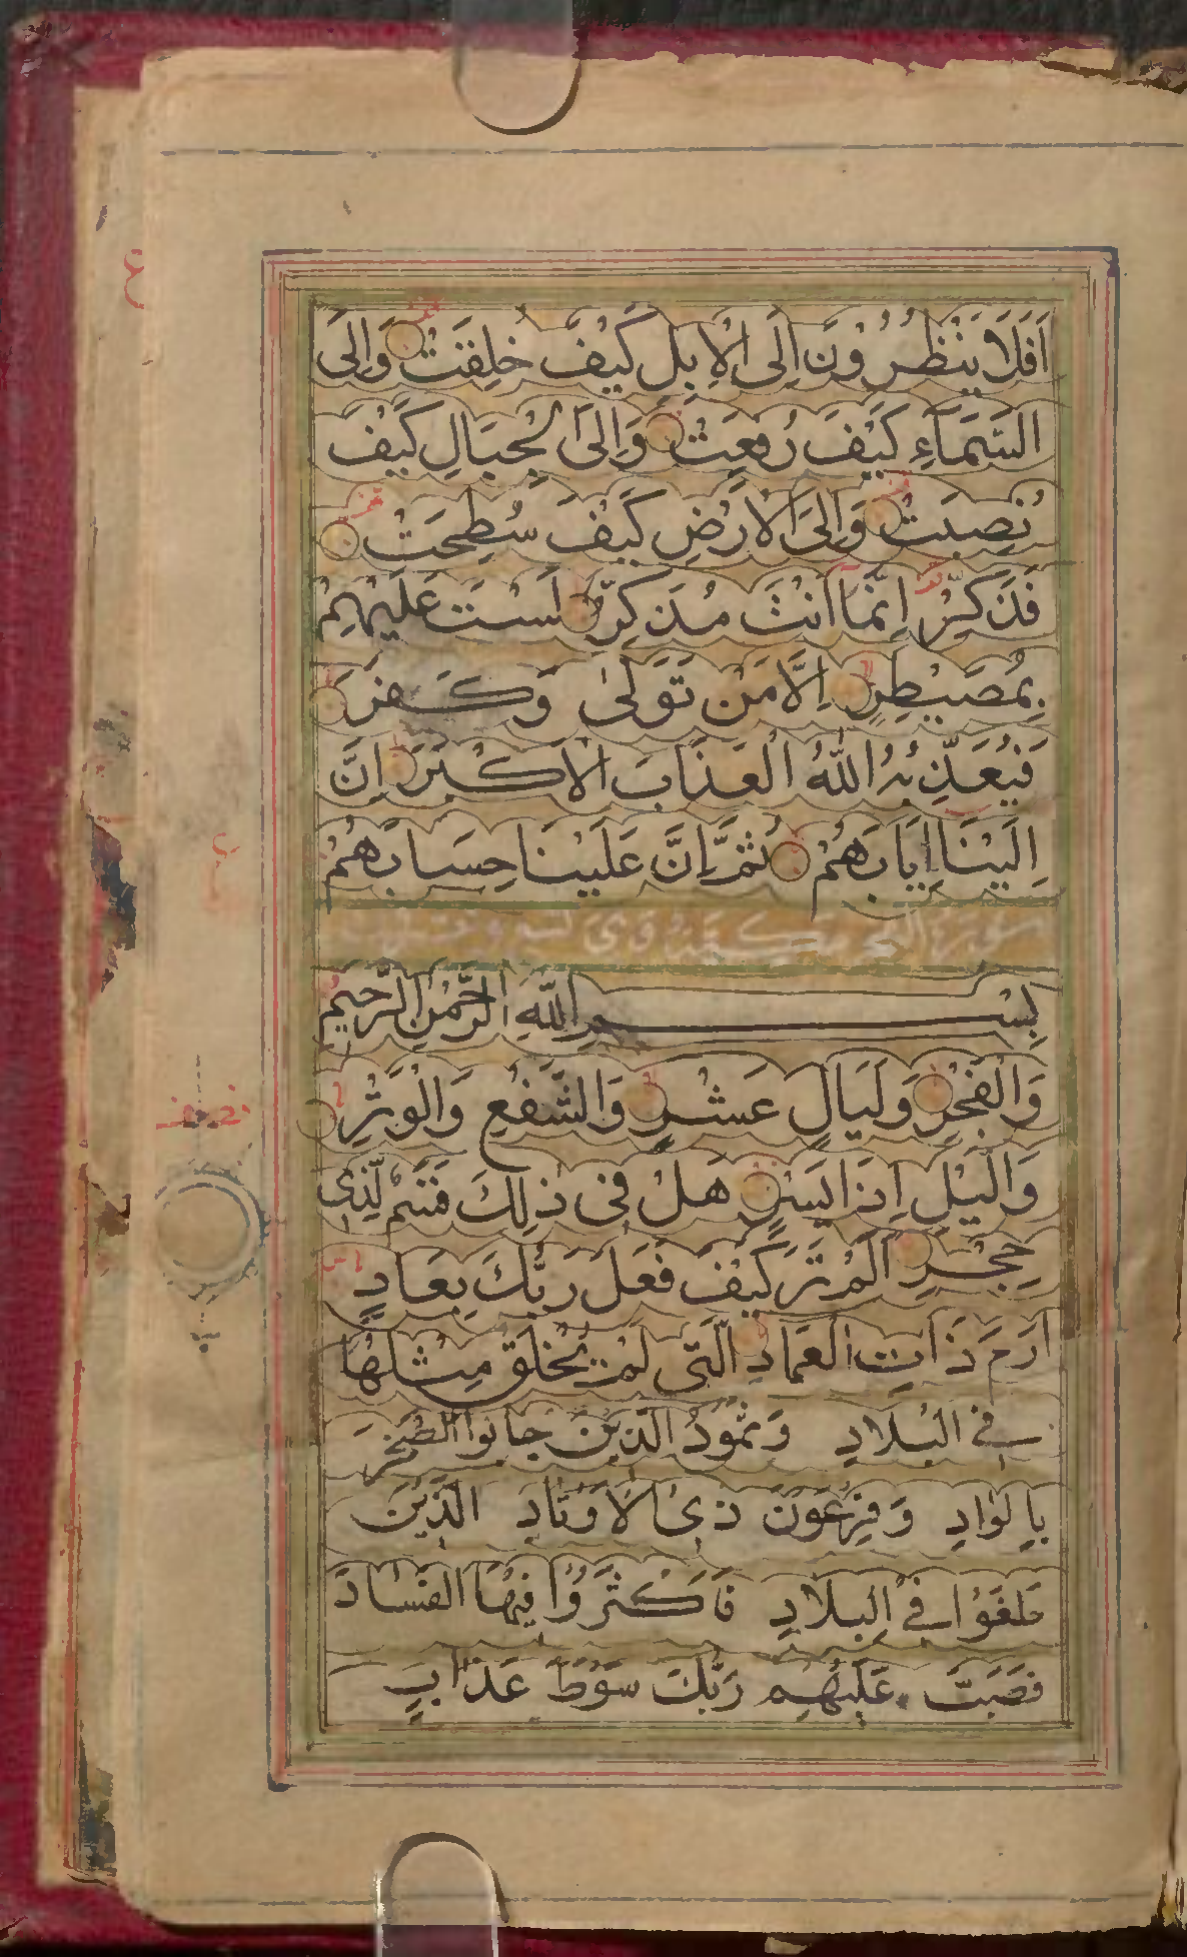 اَفَلَا يَنْظُرُونَ اِلَى الْاِبِلِ كَيْفَ خُلِقَتْ وَاِلَى
السَّمَآءِ كَيْفَ رُفِعَتْ وَاِلَى الْجِبَالِ كَيْفَ
نُصِبَتْ وَاِلَى الْاَرْضِ كَيْفَ سُطِحَتْ
فَذَكِّرْ اِنَّمَآ اَنْتَ مُذَكِّرٌ لَسْتَ عَلَيْهِمْ
بِمُصَيْطِرٍ اِلَّا مَنْ تَوَلّٰى وَكَفَرَ
فَيُعَذِّبُهُ اللّٰهُ الْعَذَابَ الْاَكْبَرَ اِنَّ
اِلَيْنَا اِيَابَهُمْ ثُمَّ اِنَّ عَلَيْنَا حِسَابَهُمْ
سورة الفجر
بِسْمِ اللّٰهِ الرَّحْمٰنِ الرَّحِيْمِ
وَالْفَجْرِ وَلَيَالٍ عَشْرٍ وَالشَّفْعِ وَالْوَتْرِ
وَالَّيْلِ اِذَا يَسْرِ هَلْ فِى ذٰلِكَ قَسَمٌ لِّذِى
حِجْرٍ اَلَمْ تَرَ كَيْفَ فَعَلَ رَبُّكَ بِعَادٍ
اِرَمَ ذَاتِ الْعِمَادِ الَّتِى لَمْ يُخْلَقْ مِثْلُهَا
فِى الْبِلَادِ وَثَمُوْدَ الَّذِيْنَ جَابُوا الصَّخْرَ
بِالْوَادِ وَفِرْعَوْنَ ذِى الْاَوْتَادِ الَّذِيْنَ
طَغَوْا فِى الْبِلَادِ فَاَكْثَرُوْا فِيْهَا الْفَسَادَ
فَصَبَّ عَلَيْهِمْ رَبُّكَ سَوْطَ عَذَابٍ
ع
ع
نصف